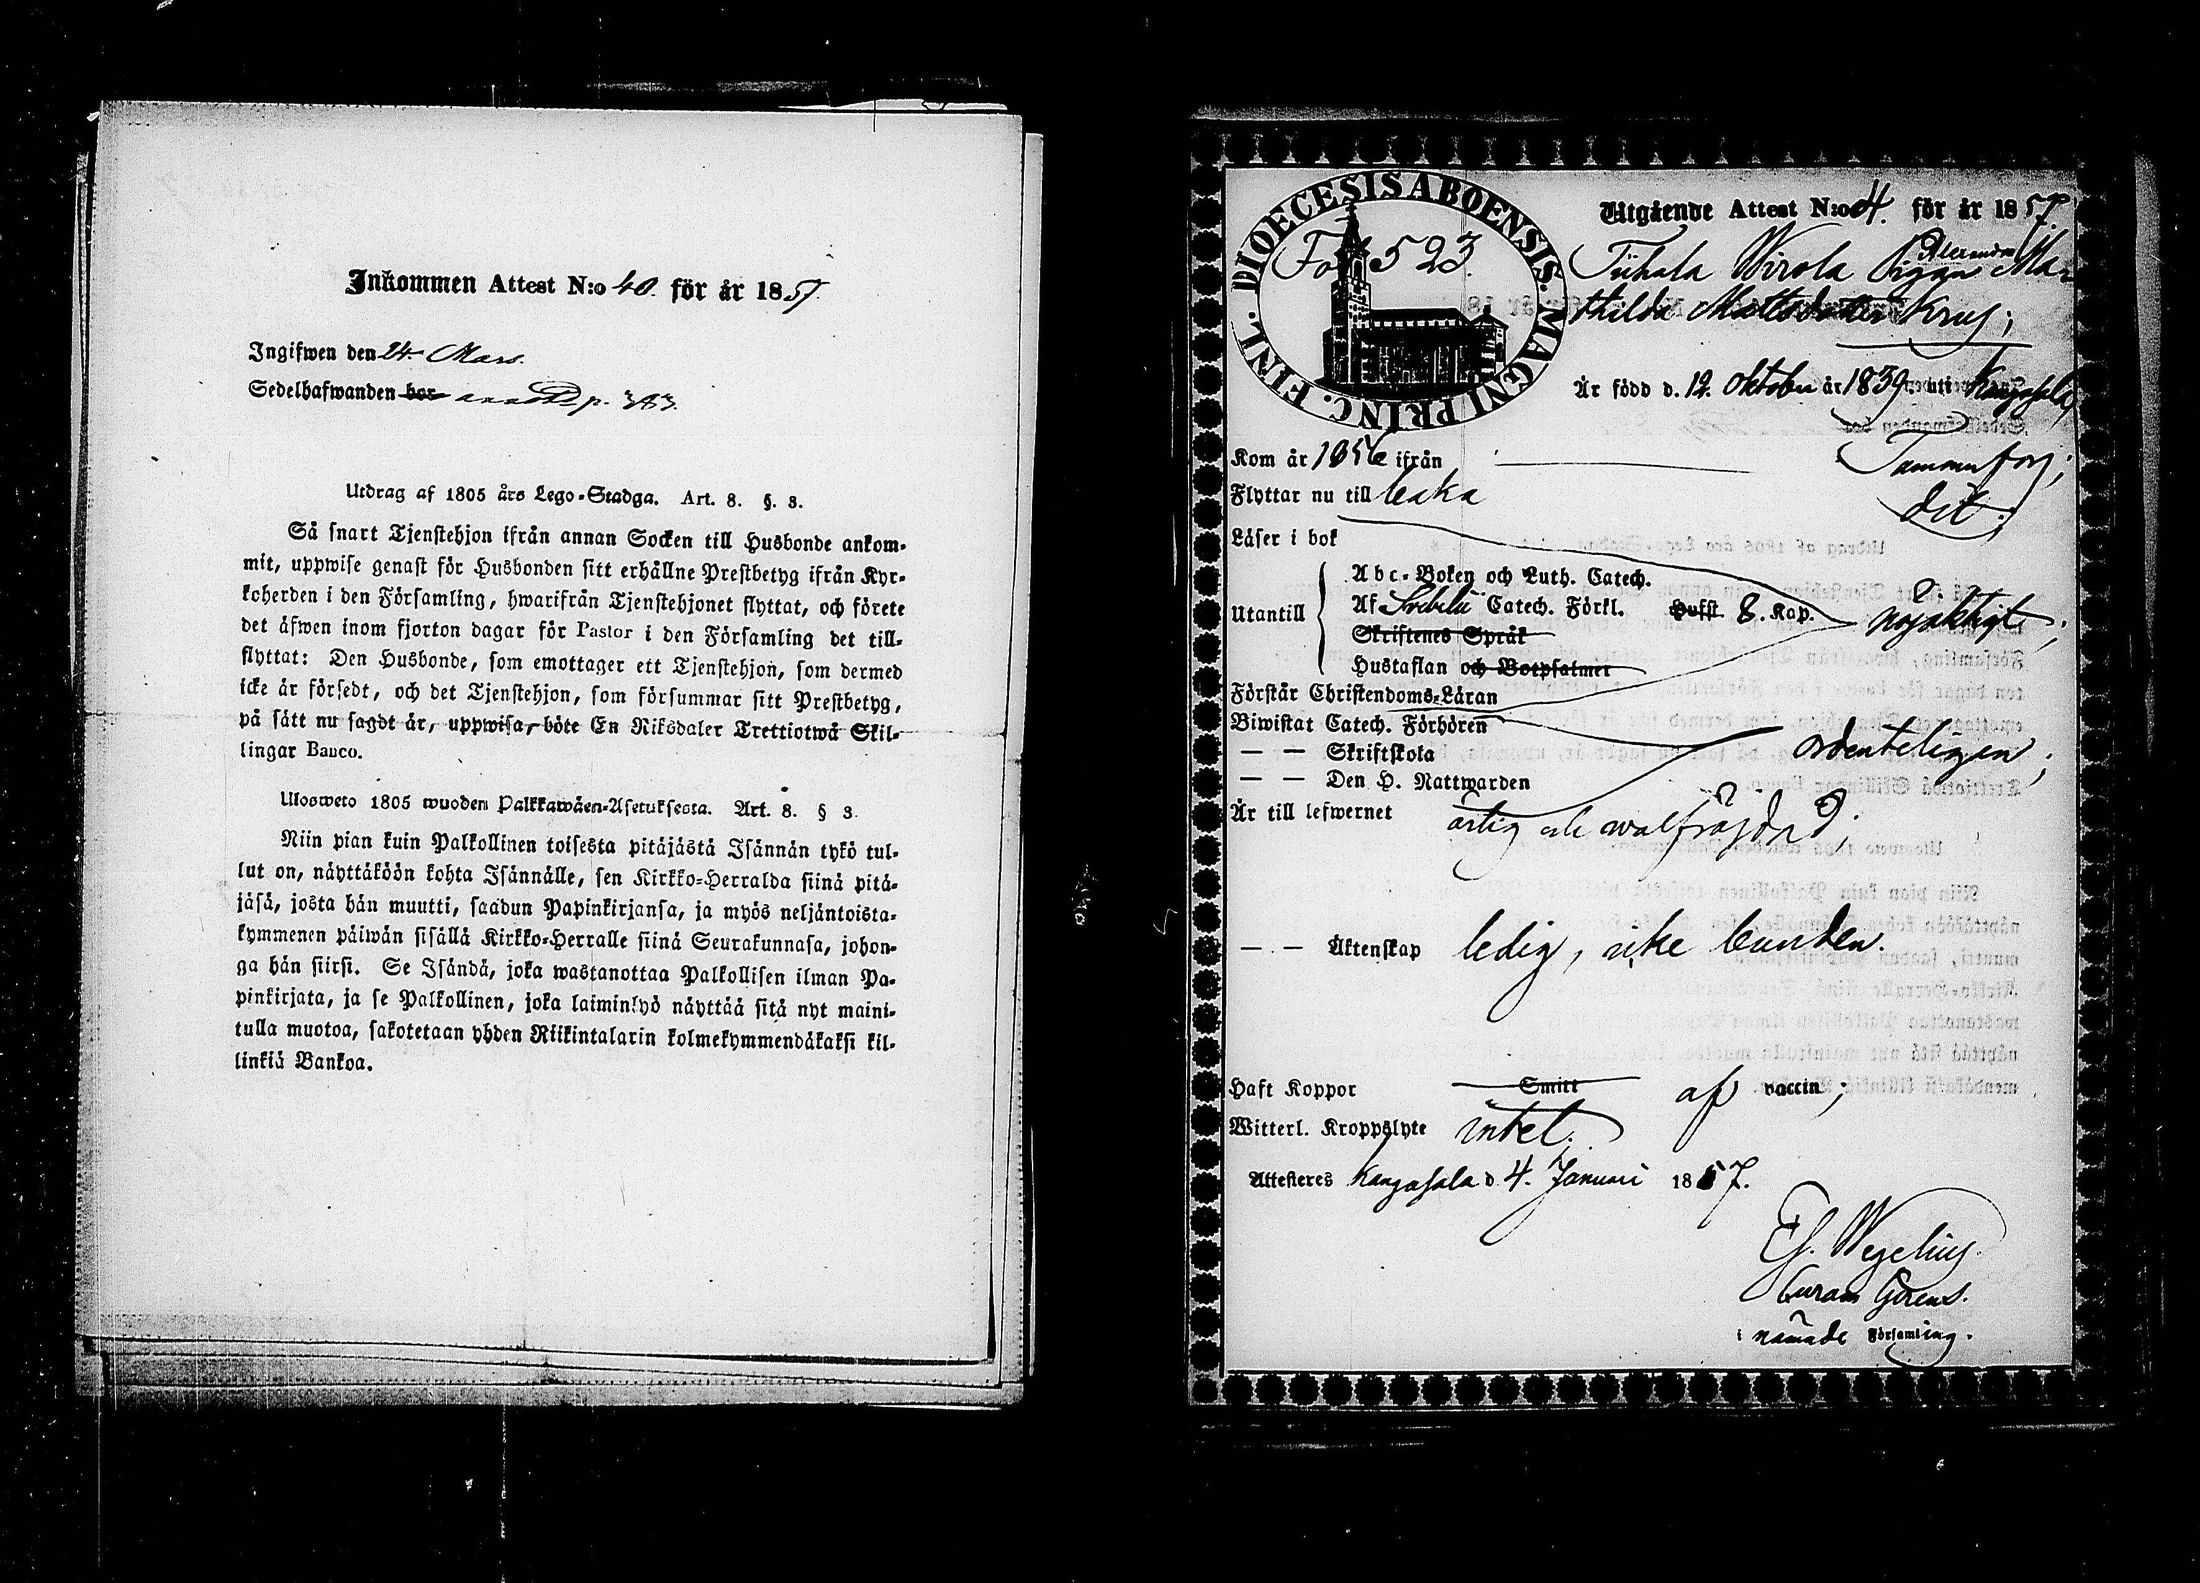 Inkommen Attest N:o 40. för år 1857.
Ingifwen den 24 Mars.
Sedelhafwanden bor p. 383.
Utdrag af 1805 års Lego-Stadga. Art. 8. §. 3.
Så snart Tjenstehjon ifrån annan Socken till Husbonde ankom-
mit, uppwise genast för Husbonden sitt erhållne Prestbetyg ifrån Kyr-
koherden i den Församling, hwarifrån Tjenstehjonet flyttat, och förete
det äfwen inom fjorton dagar för Pastor i den Församling det till-
flyttat: Den Husbonde, som emottager ett Tjenstehjon, som dermed
icke är försedt, och det Tjenstehjon, som försummar sitt Prestbetyg,
på sätt nu sagdt är, uppwisa, böte En Riksdaler Trettiotwå Skil-
lingar Banco.
Ulosweto 1805 wuoden Palkkawäen-Asetuksesta. Art. 8. § 3.
Niin pian kuin Palkollinen toisesta pitäjästä Isännän tykö tul-
lut on, näyttäköön kohta Isännälle, sen Kirkko-Herralda siinä pitä-
jäsä, josta hän muutti, saadun Papinkirjansa, ja myös neljäntoista-
kymmenen päiwän sisällä Kirkko-Herralle siinä Seurakunnasa, johon-
ga hän siirsi. Se Isändä, joka wastanottaa Palkollisen ilman Pa-
pinkirjata, ja se Palkollinen, joka laiminlyö näyttää sitä nyt maini-
tulla muotoa, sakotetaan yhden Riikintalarin kolmekymmendäkaksi kil-
linkiä Bankoa.
DIOECESIS ABOENSIS. MAGNI PRINC. FINL.
Fol 523.
Utgående Attest N:o 4. för år 1857.
Tiihala Wirola Pigan Alexandra Ma-
thilda Mattsdotter Krus;
Är född d. 12. Oktober år 1839, uti Kangasala,
Kom år 1856 ifrån Tammerfors;
Flyttar nu till baka dit;
Läser i bok
Utantill
Abc-Boken och Luth. Catech.
Af Svebelii Catech. Förkl. Hufst 8. Kap. nöjaktigt;
Skriftenes Språk
Hustaflan och Botpsalmer
Förstår Christendoms-Läran
Biwistat Catech. Förhören
— — Skriftskola ordenteligen;
— — Den H. Nattwarden
Är till lefwernet ärlig och wälfräjdad;
— — Äktenskap ledig, icke bunden.
Haft Koppor Smitt af vaccin;
Witterl. Kroppslyte intet.
Attesteres Kangasala d. 4. Januari 1857.
Wegelius.
Curam Gerens.
i nämnde Församling.